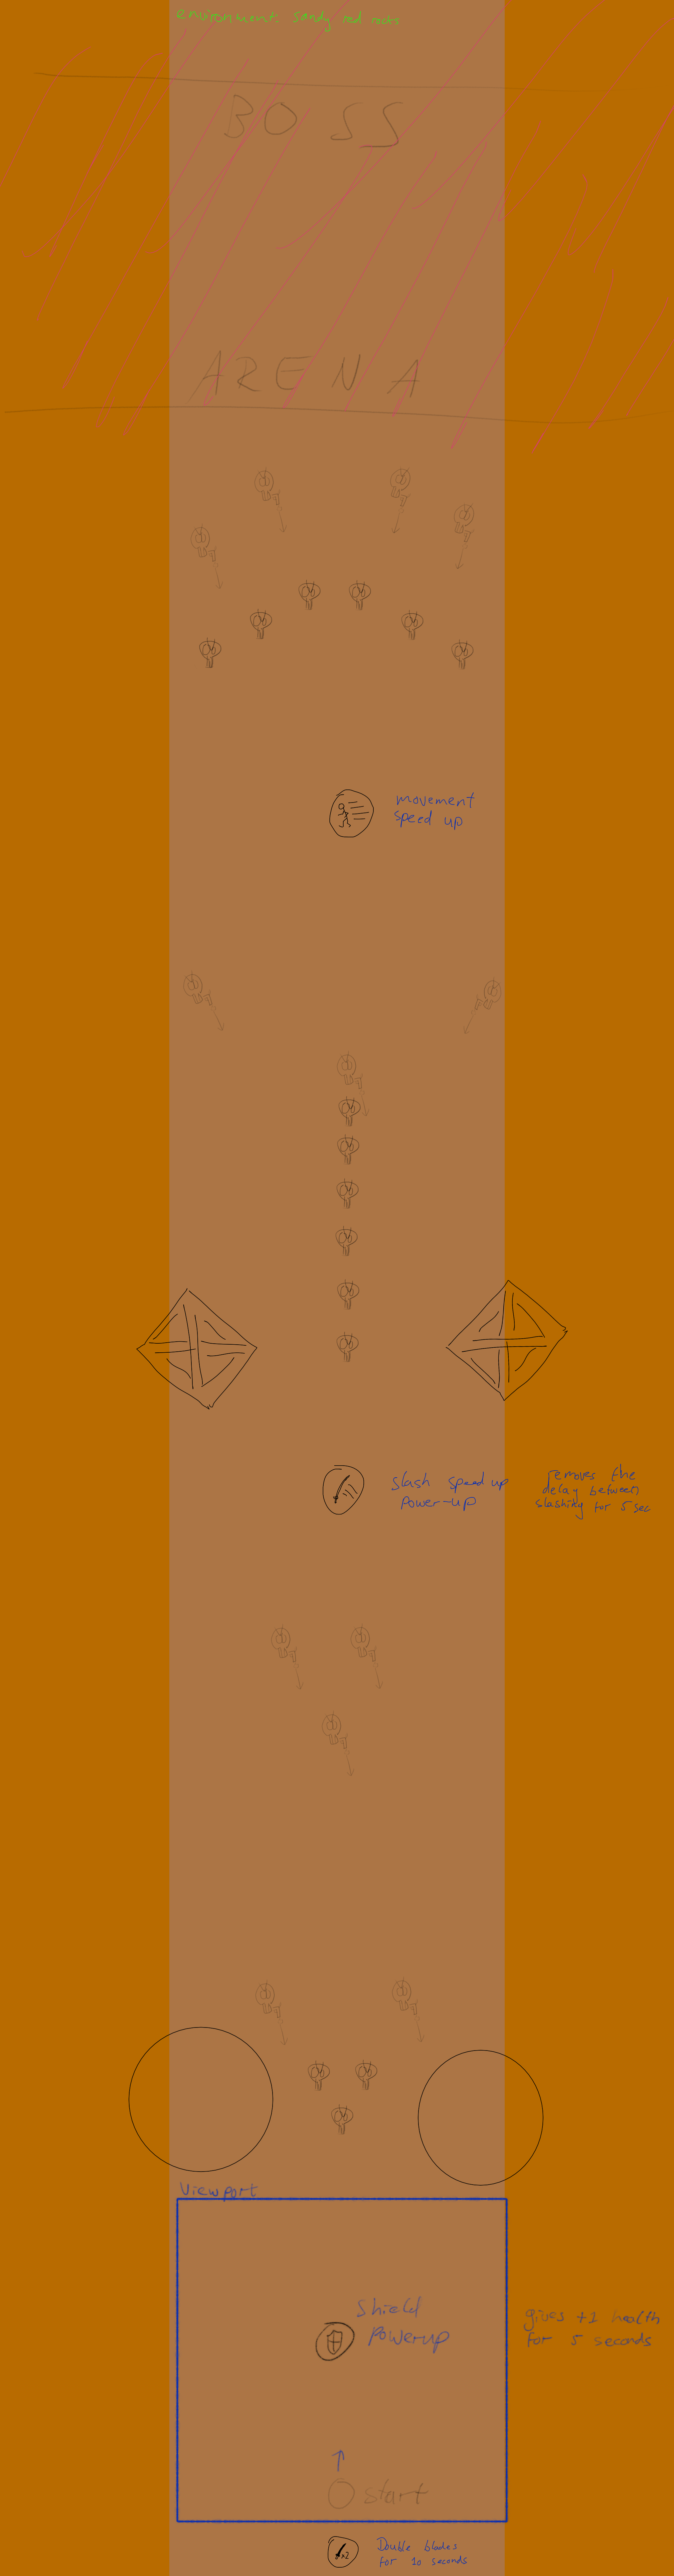 environment: sandy red rocks
BOSS
ARENA
movement
speed up
slash speed up
power-up
removes the
delay between
slashing for 5 sec
Viewport
Shield
Powerup
gives +1 health
for 5 seconds
start
x2
Double blades
for 10 seconds